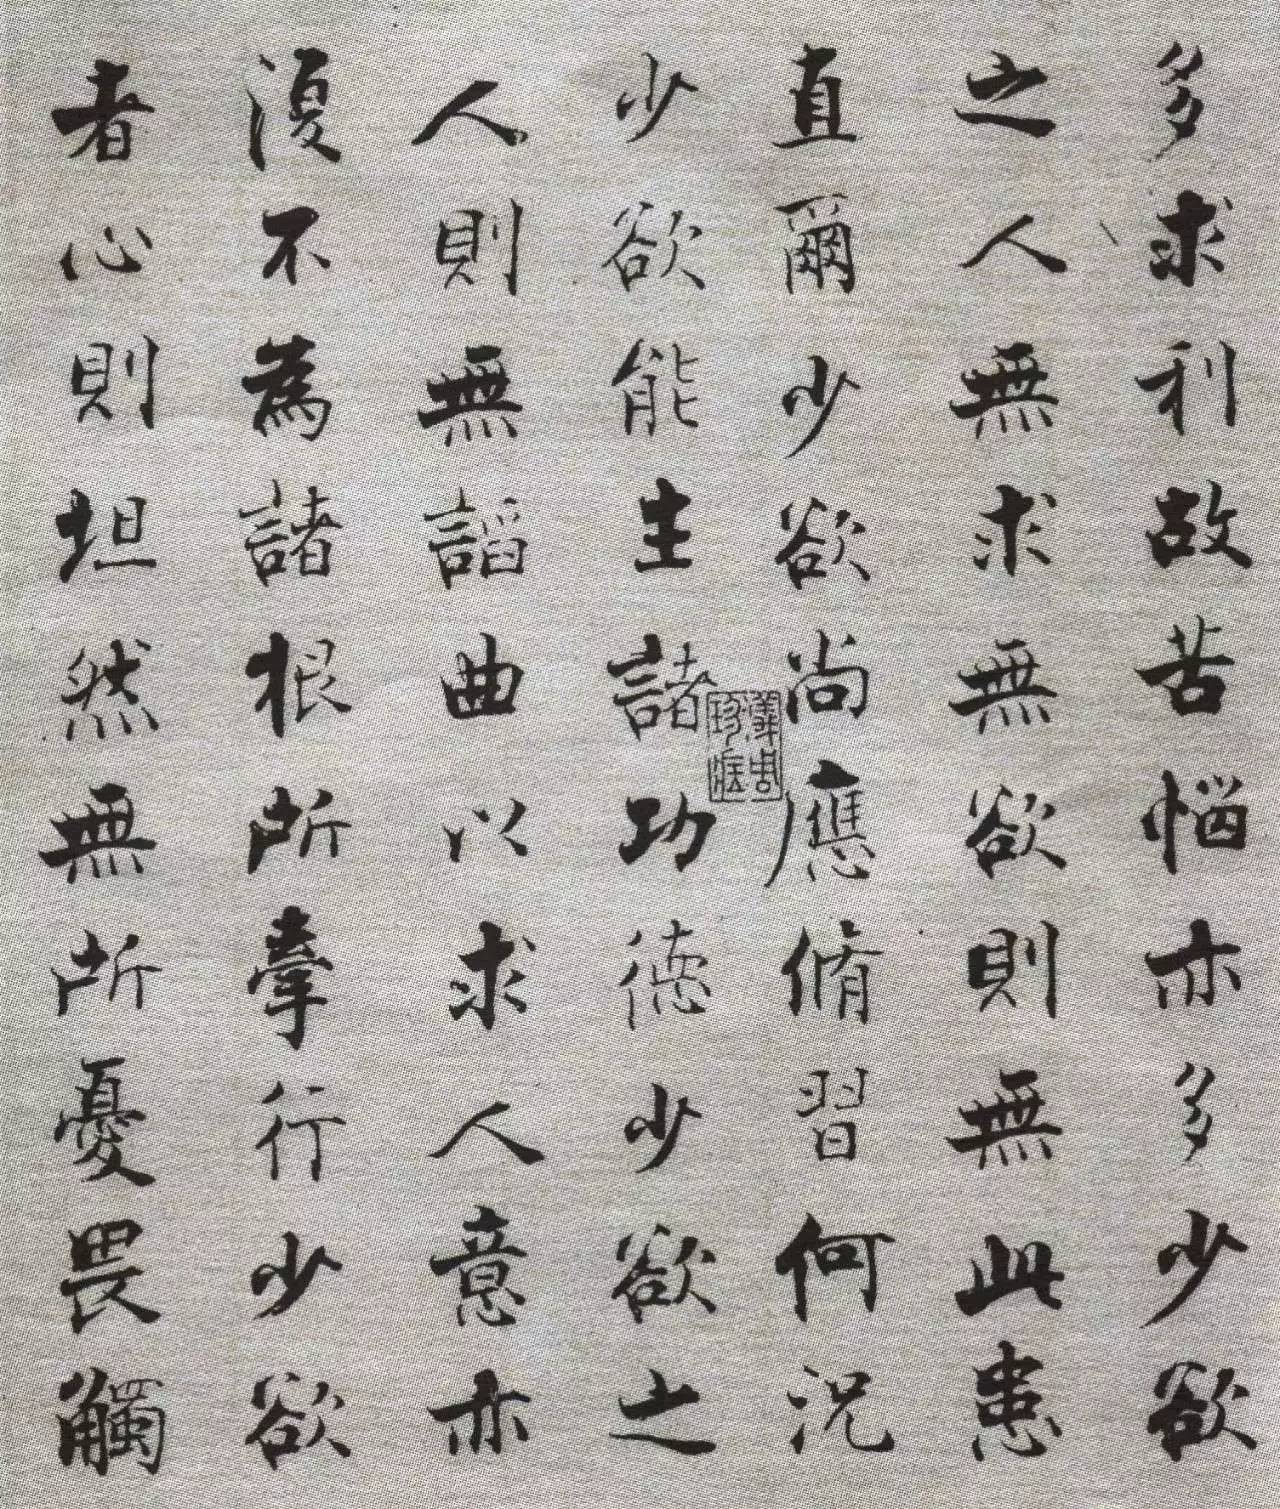 多求利故苦惱亦多少欲
之人無求無欲則無此患
直爾少欲尚應脩習何況
少欲能生諸功德少欲之
人則無諂曲以求人意亦
復不為諸根所牽行少欲
者心則坦然無所憂畏觸